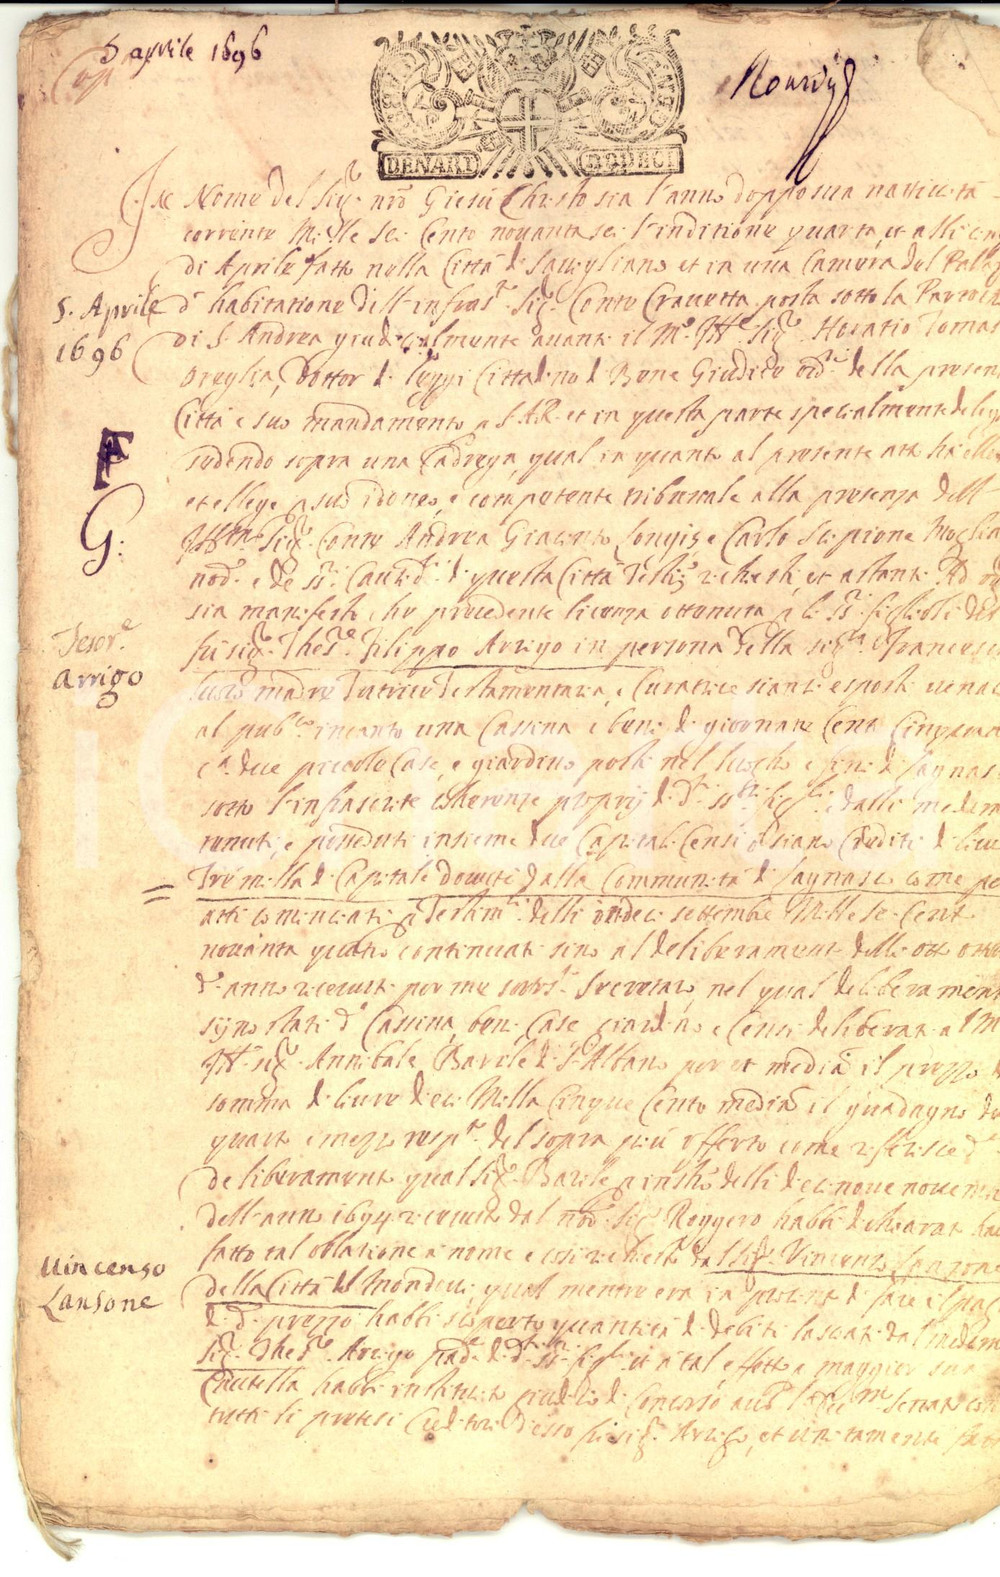 5 aprile 1696
DENARI DODECI
Nel Nome del Sig.r nro Giesù Christo sia l'anno doppo sua natività
corrente Mille sei Cento novanta sei l'inditione quarta, et alli cinq
di Aprile fatto nella Città di Savigliano et in una Camera del Palaz
5. Aprile
1696
d' habitatione dell' infras.to Sig.r Conte Cravetta posta sotto la Parroch
di S. Andrea giudicialmente avanti il M.to Ill.re Sig.r Horatio Tomas
Oreglia, Dottor di leggi Cittadino di Bene Giudice ord.rio della presen
Città e suo mandamento p S.A.R. et in questa parte specialmente deleg
sedendo sopra una Cadrega qual in quanto al presente atto ha elle
et ellege p suo idoneo, e competente tribunale alla presenza dell
F
G:
Ill.mo Sig.r Conte Andrea Giacinto e Carlo Scipione
nod. e de ss.ri Caus.ci di questa Città test richiesti, et astanti. Ad og
sia manifesto che precedente licenza ottenuta p li ss.ri figlioli del
Tesor.e
Arrigo
fu sig.r Thes.e Filippo Arrigo in persona della sig.ra Francesc
loro madre Tutrice Testamentaria, e Curatrice sianti esposti venal
al pub.co incanto una Cassina e beni di giornate Cento Cinquan
c.a due piccole Case, e giardino posti nel luogho e fini di Lagnasc
sotto l'infrascritte coherenze proprij di d.ti ss.ri fig.li e dalli medem
tenuti, e posseduti insieme due Capitali Censi o siano Crediti di livre
Tre milla di Capitale dovuti dalla Communità di Lagnasco come pe
atti cominciati p Testim.li delli undeci settembre Mille sei Cento
novanta quatro continuati sino al deliberamento delli otto otto
d.o anno ricevuti per me sotts.to Secretaro, nel qual deliberamento
signo stati d.a Cassina, beni, Case, giardino e Censi deliberati al M
Ill.re sig.r Annibale Barile di S.t Albano per et mediante il prezzo e
somma di livre dieci Milla Cinque Cento mediante il guadagno de
quarto e mezzo resp.te del sopra più offerto come riferisce d.o
deliberamento qual Sig.r Barile p instro delli dieci nove novemb
dell' anno 1694 ricevuto dal nod. Sig.r Roggero habbi dichiarat hav
fatto tal oblatione a nome, e così richiesto dal sig.r Vincenzo Lanzone
Vincenzo
Lansone
della Città del Mondovi, qual mentre era in procinto di fare il pag
di d.o prezzo habbi scoperto quantità di debiti lasciati dal medem
Sig.r Thes.e Arrigo padre di d.ti ss.ri fig.li et a tal effetto a maggior sua
Cautella habbi instituito giudicio di Concorso avanti l'Ecc.mo Senato con
tutti li pretesi Creditori d'esso fu sig.r Arrigo, et unitamente fatt